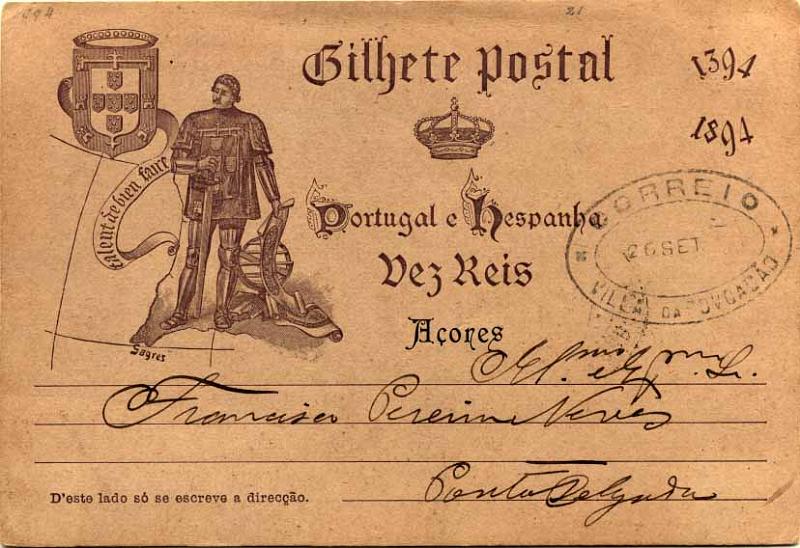 Bilhete Postal
1394
1894
talent de bien faire
Portugal e Hespanha
Dez Reis
Açores
Sagres
CORREIO
20 SET
VILLA DA POVOAÇÃO
Francisco Pereira Neves
Ponta Delgada
D'este lado só se escreve a direcção.
21